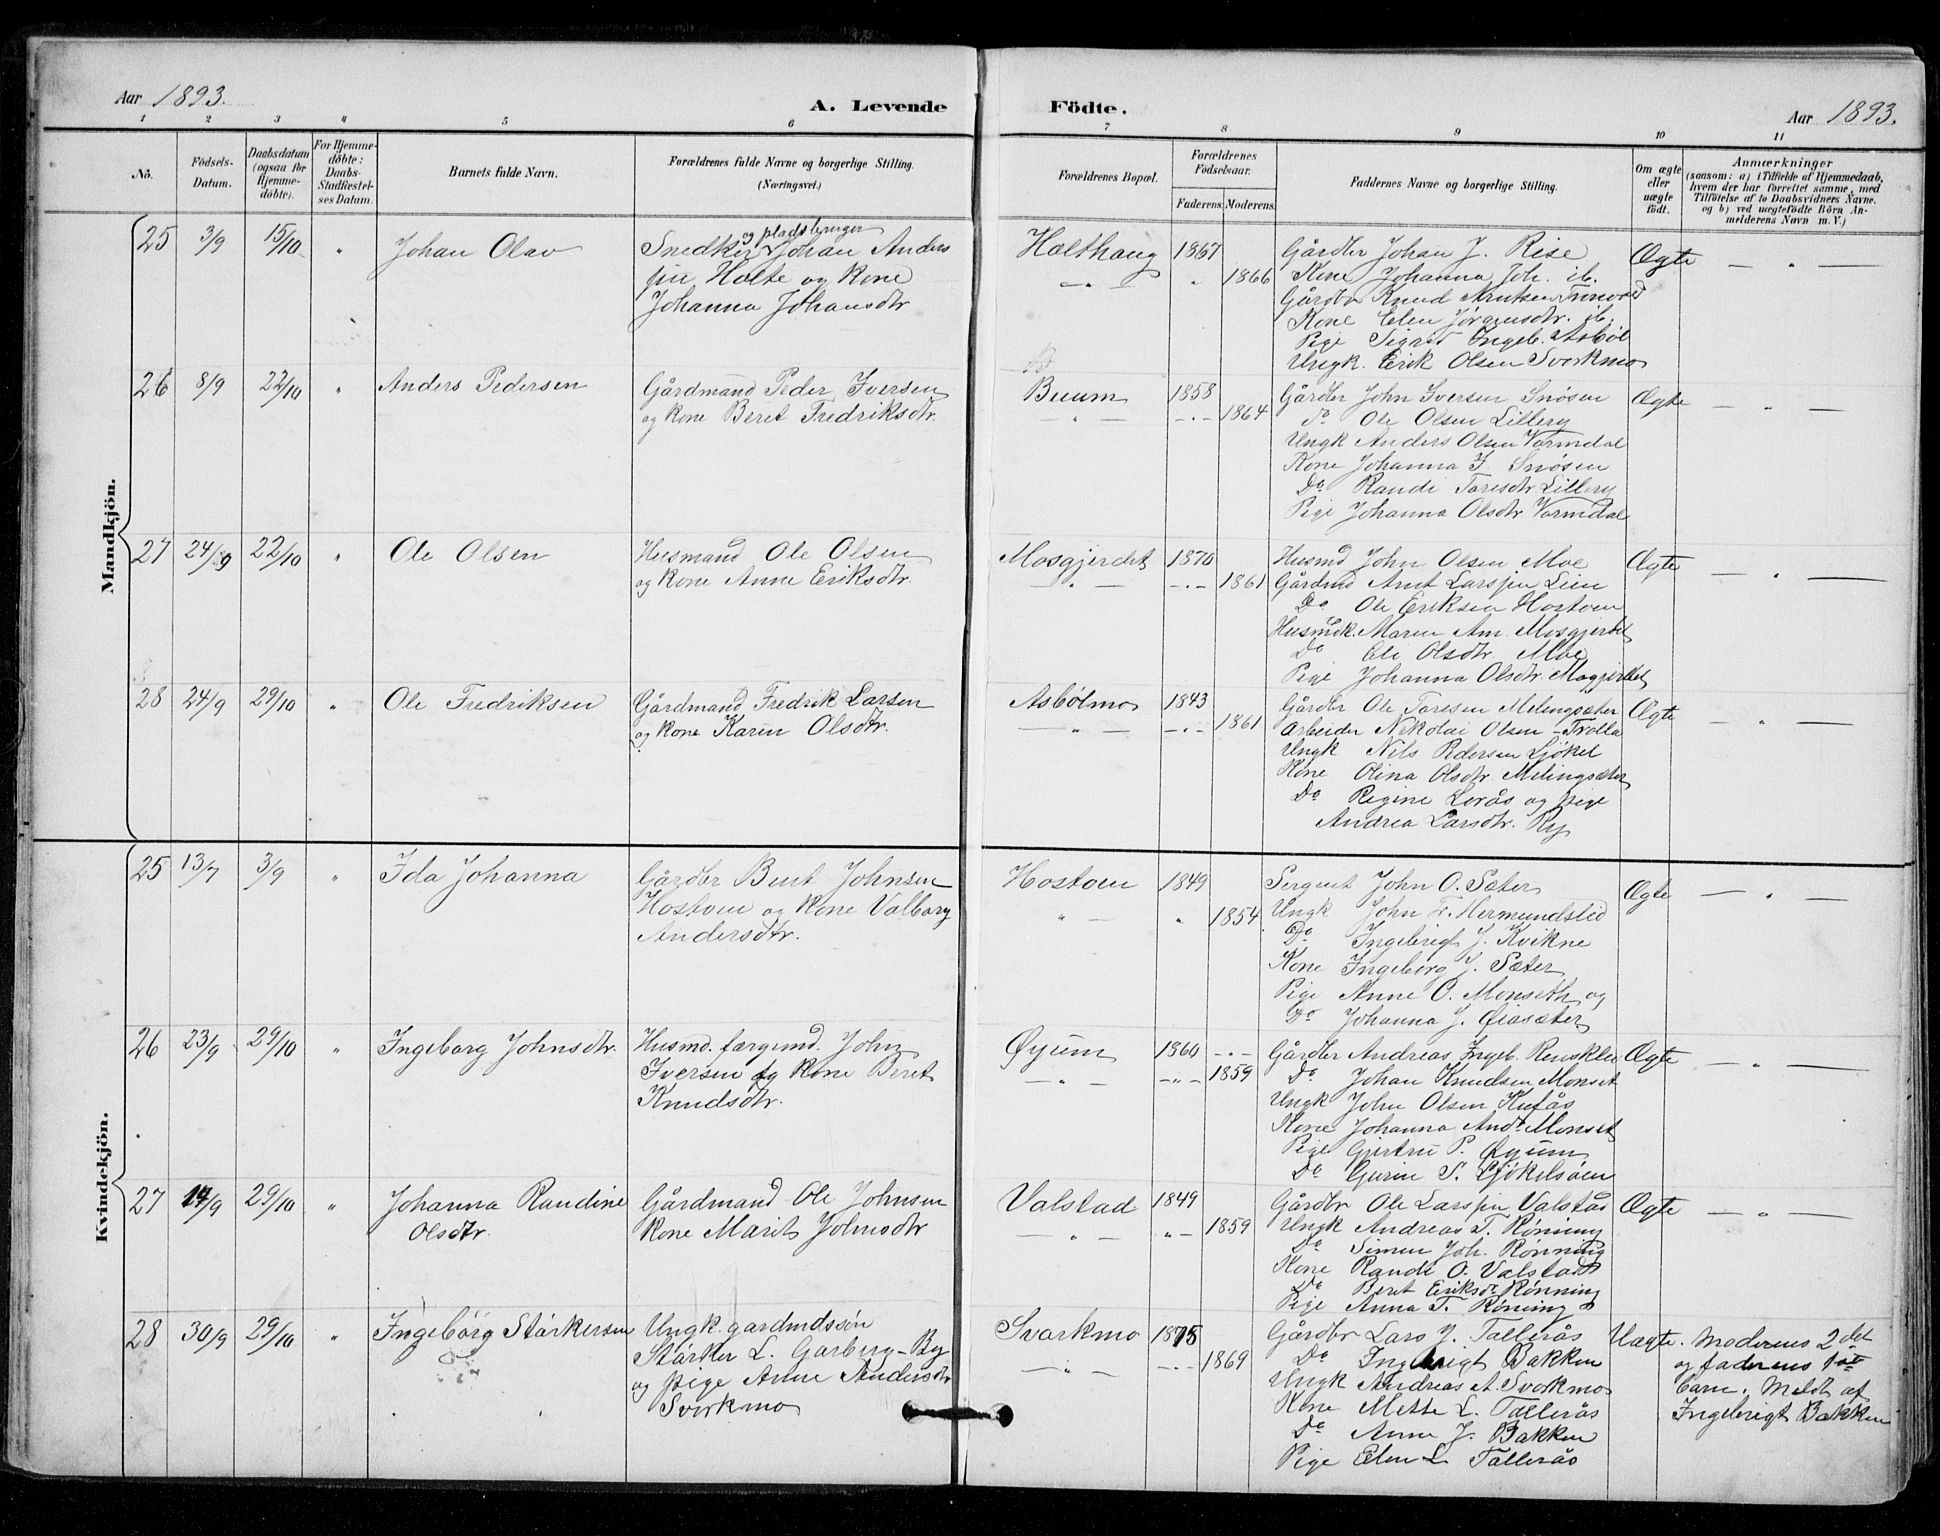 Aar 1893. A. Levende Födte. Aar 1893.
1 2 3 4 5 6 7 8 9 10 11
No.
Födsels-Datum.
Daabsdatum (ogsaa for Hjemme-döbte).
For Hjemme-döbte: Daabs-Stadfæstel-ses Datum.
Barnets fulde Navn.
Forældrenes fulde Navne og borgerlige Stilling. (Næringsvei.)
Forældrenes Bopæl.
Forældrenes Födselsaar.
Faderens. Moderens.
Faddernes Navne og borgerlige Stilling.
Om ægte eller uægte födt.
Anmærkninger
(saasom: a) i Tilfælde af Hjemmedaab,
hvem der har forrettet samme, med
Tilföielse af to Daabsvidners Navne.
og b) ved uægtefödte Börn An-
melderens Navn m. V.)
Mandkjön.
25 3/9 15/10 " Johan Olav
og pladsbruger
Snedker Johan Anders
sen Holte og Kone
Johanna Johansdtr
Holthaug 1867
— " — " 1866
Gårdbr Johan J. Rise
Kone Johanna Joh. ib.
Gårdbr Knud Arntsen
Kone Elen Jørgensdtr. ib.
Pige Sigrid Ingeb. Asbøl
Ungk. Erik Olsen Svorkmo
Ægte — " —
26 8/9 22/10 " Anders Pedersen
Gårdmand Peder Iversen
og Kone Beret Fredriksdtr.
Buum 1858
— " — -"- 1864
Gårdbr John Iversen Snøsen
do Ole Olsen Lillery
Ungk Anders Olsen Vormdal
Kone Johanna I. Snøsen
Do Randi Toresdtr Lillery
Pige Johanna Olsdtr Vormdal
Ægte — " —
27 24/9 22/10 " Ole Olsen
Husmand Ole Olsen
og Kone Anne Eriksdtr.
Mosgjerdet 1870
— " — -"- 1861
Husmd John Olsen Moe
Gårdmd Arnt Larssen Lien
Do Ole Eriksen Hostoen
Husmdk. Maren Am. Mosgjerdet
Do Eli Olsdtr. Moe
Pige Johanna Olsdtr Mosgjerdet
Ægte — " —
28 24/9 29/10 " Ole Fredriksen
Gårdmand Fredrik Larsen
og Kone Karen Olsdtr.
Asbølmo 1843
— " — -"- 1861
Gårdbr Ole Toresen Melingsæter
Arbeider Nikolai Olsen - Trolla
Ungk Nils Pedersen Ljøkel
Kone Olina Olsdtr. Melingsæter
Do Regine Lorås og pige
Andrea Larsdtr. Ry
Ægte — " —
Kvindekjön.
25 13/7 3/9 " Ida Johanna
Gårdbr Bent Johnsen
Hostoen og Kone Valborg
Andersdtr.
Hostoen 1849
" — " 1854
Sergent John O. Sæter
Ungk John F. Hermundslid
Do Ingebrigt J. Kvikne
Kone Ingeborg J. Sæter
Pige Anne O. Monseth og
Do Johanna J. Øiasæter
Ægte — " —
26 23/9 29/10 " Ingeborg Johnsdtr.
Husmd. færgemd. John
Iversen og Kone Beret
Knudsdtr.
Øyum 1860 -"-
— " — -"- 1859
Gårdbr Andreas Ingeb. Rensklev
Do Johan Knudsen Monset
Ungk John Olsen Kufås
Kone Johanna Andr Monset
Pige Gjertru P. Øyum
Do Guren S. Ljøkelsøen
Ægte — " —
27 17/9 29/10 " Johanna Randine
Olsdtr.
Gårdmand Ole Johnsen
Kone Marit Johnsdtr
Valstad 1849
— " — "- 1859
Gårdbr Ole Larssen Valstad
Ungk Andreas T. Rønning
Do Simen Joh. Rønning
Kone Randi O. Valstad
Do Beret Eriksd. Rønning
Pige Anna T. Rønning
Ægte — " —
28 30/9 29/10 " Ingebörg Stårkersen
Ungk. gardmdssön
Stårker L. Garberg - By
og pige Anne Andersdtr
Svorkmo
Svorkmo 1875
— " — -"- 1869
Gårdbr Lars J. Tallerås
Do Ingebrigt Bakken
Ungk Andreas A. Svorkmo
Kone Mette L. Tallerås
Do Anne J. Bakken
Pige Elen L. Tallerås
Uægte. Moderens 2det
og faderens 1ste
barn. Meldt af
Ingebrigt Bakken